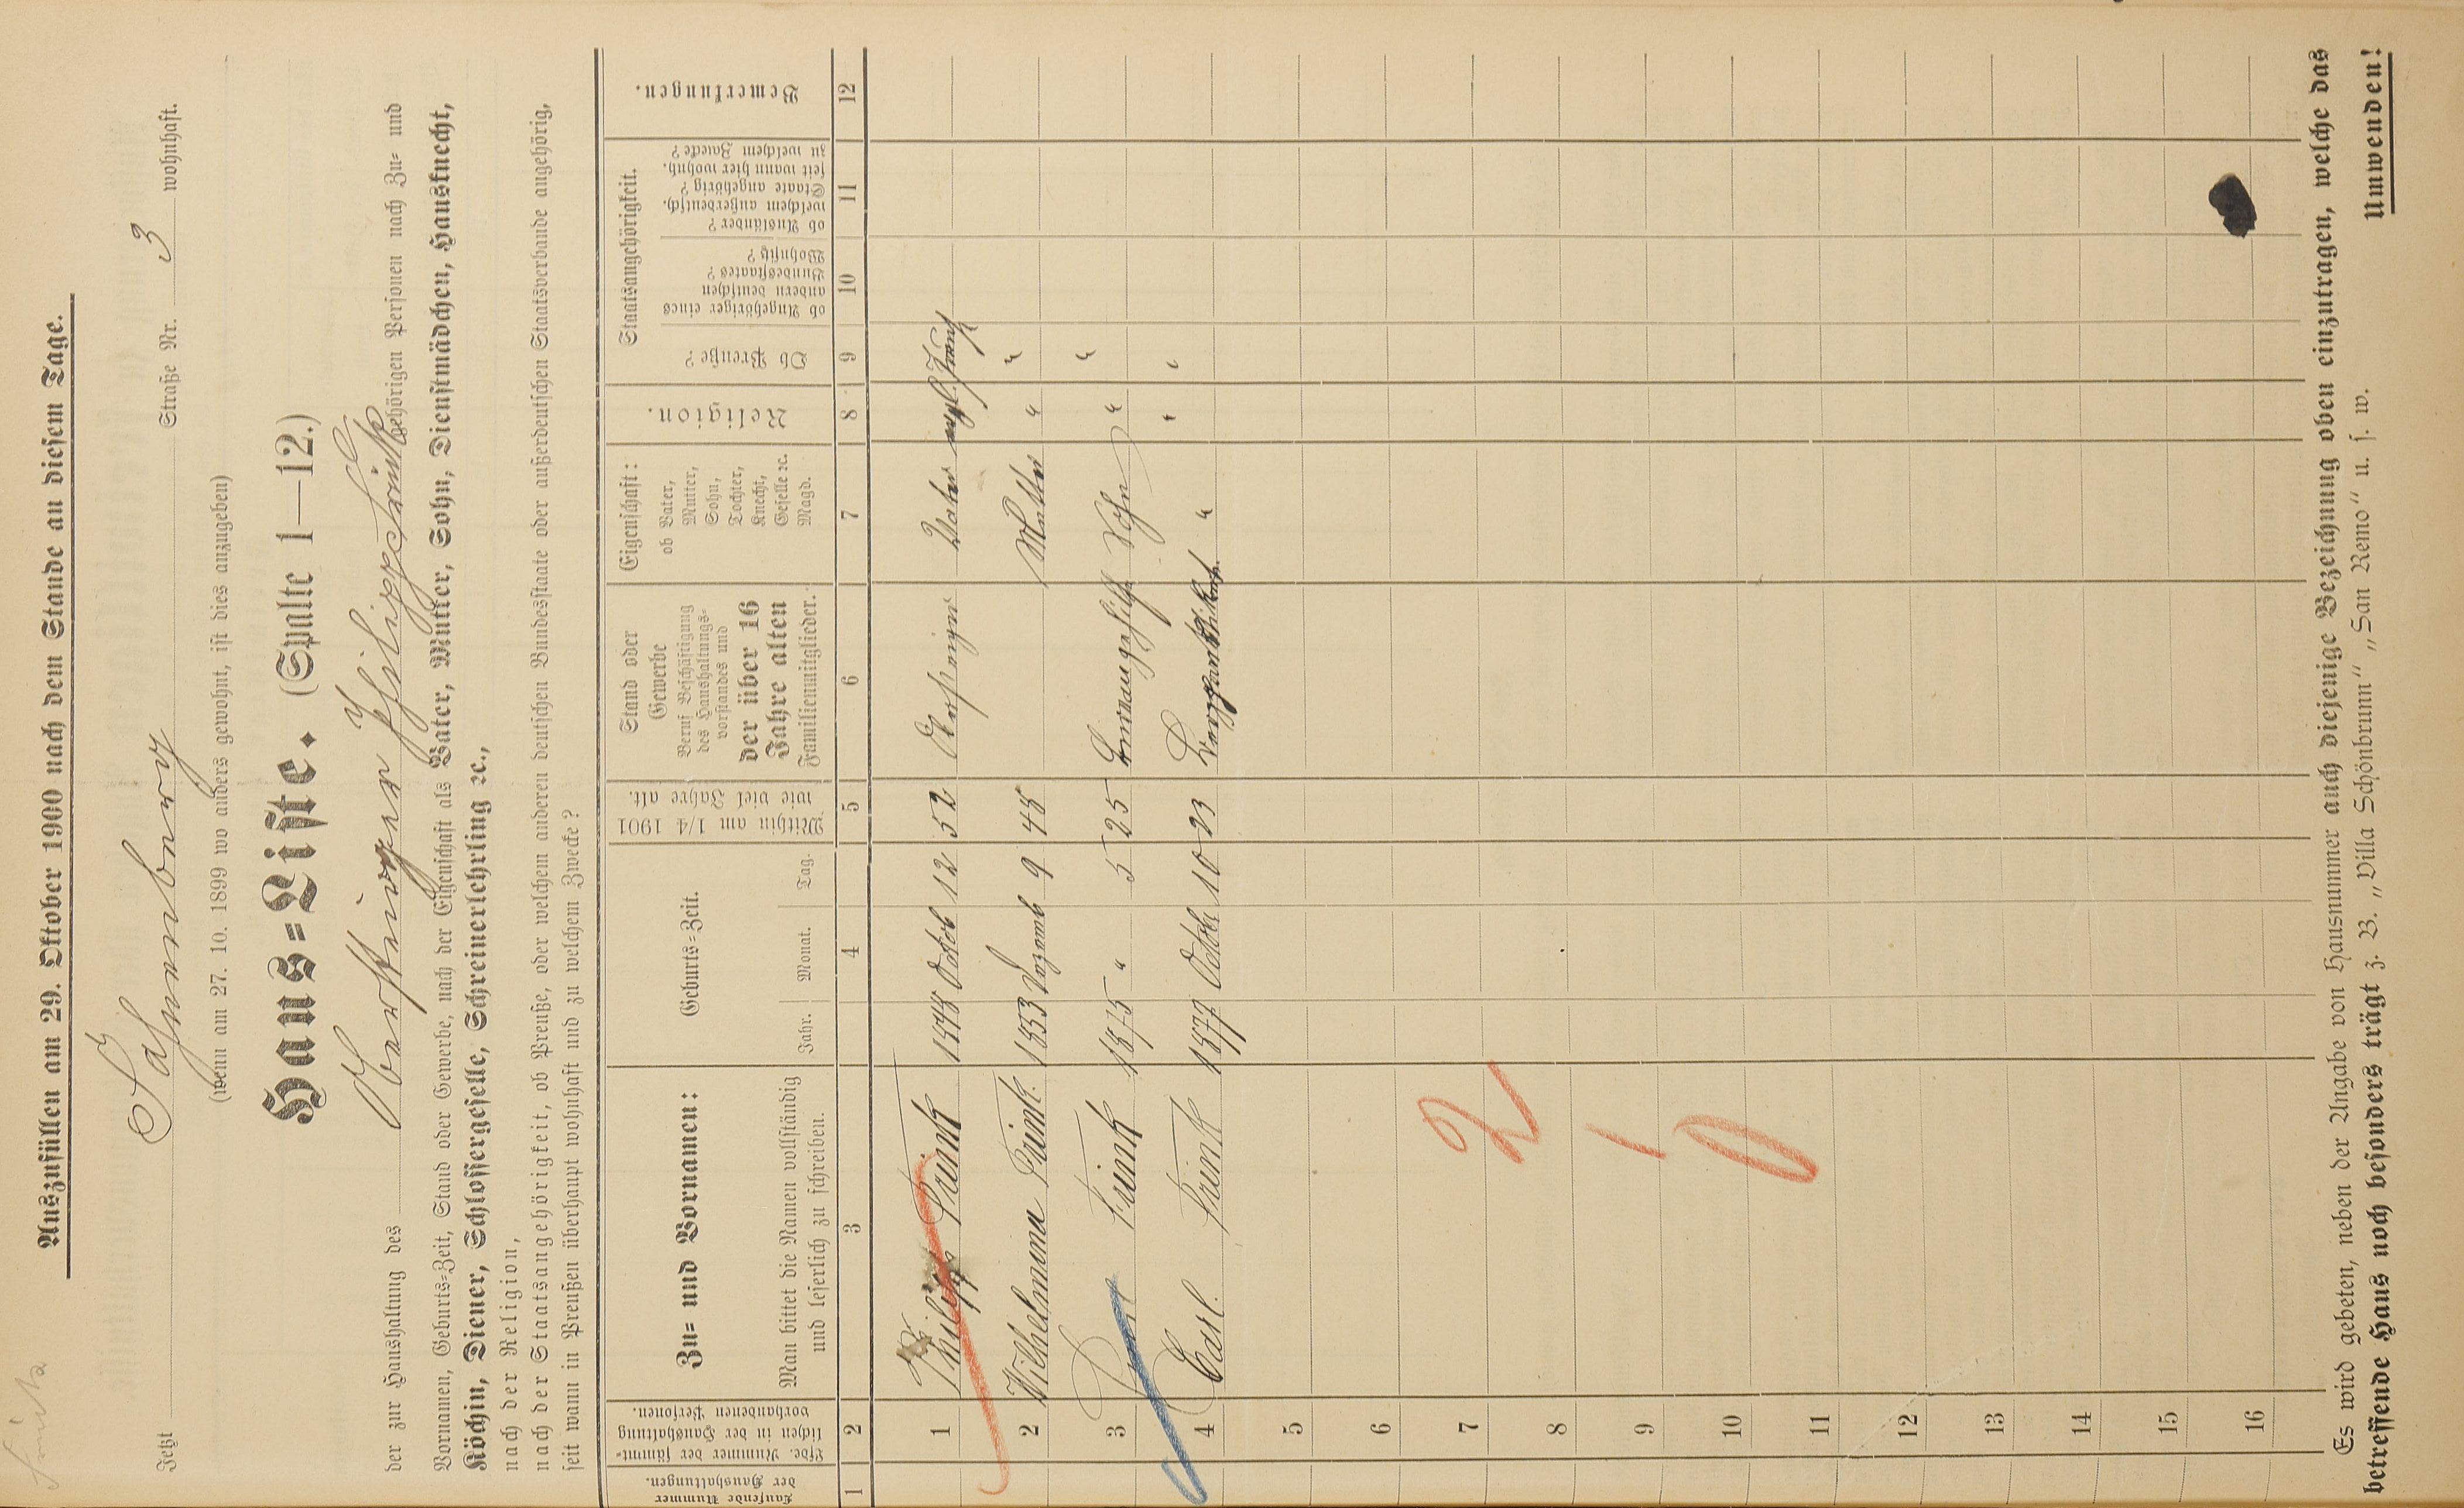 Auszufüllen am 29. Oktober 1900 nach dem Stande an diesem Tage.
Jetzt Straße Nr. 3 wohnhaft.
(wenn am 27. 10. 1899 wo anders gewohnt, ist dies anzugeben)
Haus=Liste. (Spalte 1—12.)
der zur Haushaltung des Philipp gehörigen Personen nach Zu= und
Vornamen, Geburts=Zeit, Stand oder Gewerbe, nach der Eigenschaft als Vater, Mutter, Sohn, Dienstmädchen, Hausknecht,
Köchin, Diener, Schlossergeselle, Schreinerlehrling ꝛc.,
nach der Religion,
nach der Staatsangehörigkeit, ob Preuße, oder welchem anderen deutschen Bundesstaate oder außerdeutschen Staatsverbande angehörig,
seit wann in Preußen überhaupt wohnhaft und zu welchem Zwecke?
Laufende Nummer der Haushaltungen.
Lfde. Nummer der sämmtlichen in der Haushaltung vorhandenen Personen.
Zu= und Vornamen:
Man bittet die Namen vollständig
und leserlich zu schreiben.
Geburts=Zeit.
Jahr. Monat. Tag.
Mithin am 1/4 1901
wie viel Jahre alt.
Stand oder
Gewerbe
Beruf Beschäftigung
des Haushaltungs=
vorstandes und
der über 16
Jahre alten
Familienmitglieder.
Eigenschaft:
ob Vater,
Mutter,
Sohn,
Tochter,
Knecht,
Geselle ꝛc.
Magd.
Religion.
Staatsangehörigkeit.
Ob Preuße?
ob Angehöriger eines
andern deutschen
Bundesstaates?
Wohnsitz?
ob Ausländer?
welchem außerdeutsch.
Staate angehörig?
seit wann hier wohnh.
zu welchem Zwecke?
Bemerkungen.
1 2 3 4 5 6 7 8 9 10 11 12
1 Philipp 1848 Octob 12 52 Vater
2 Wilhelmina 1853 Dezemb 9 48 Mutter " "
3 1875 " 5 25 Sohn " "
4 Carl 1877 Octob 10 23 " " "
5
6
7
8
9
10
11
12
13
14
15
16
2
1
0
Es wird gebeten, neben der Angabe von Hausnummer auch diejenige Bezeichnung oben einzutragen, welche das
betreffende Haus noch besonders trägt z. B. „Villa Schönbrunn" „San Remo" u. s. w.
Umwenden!